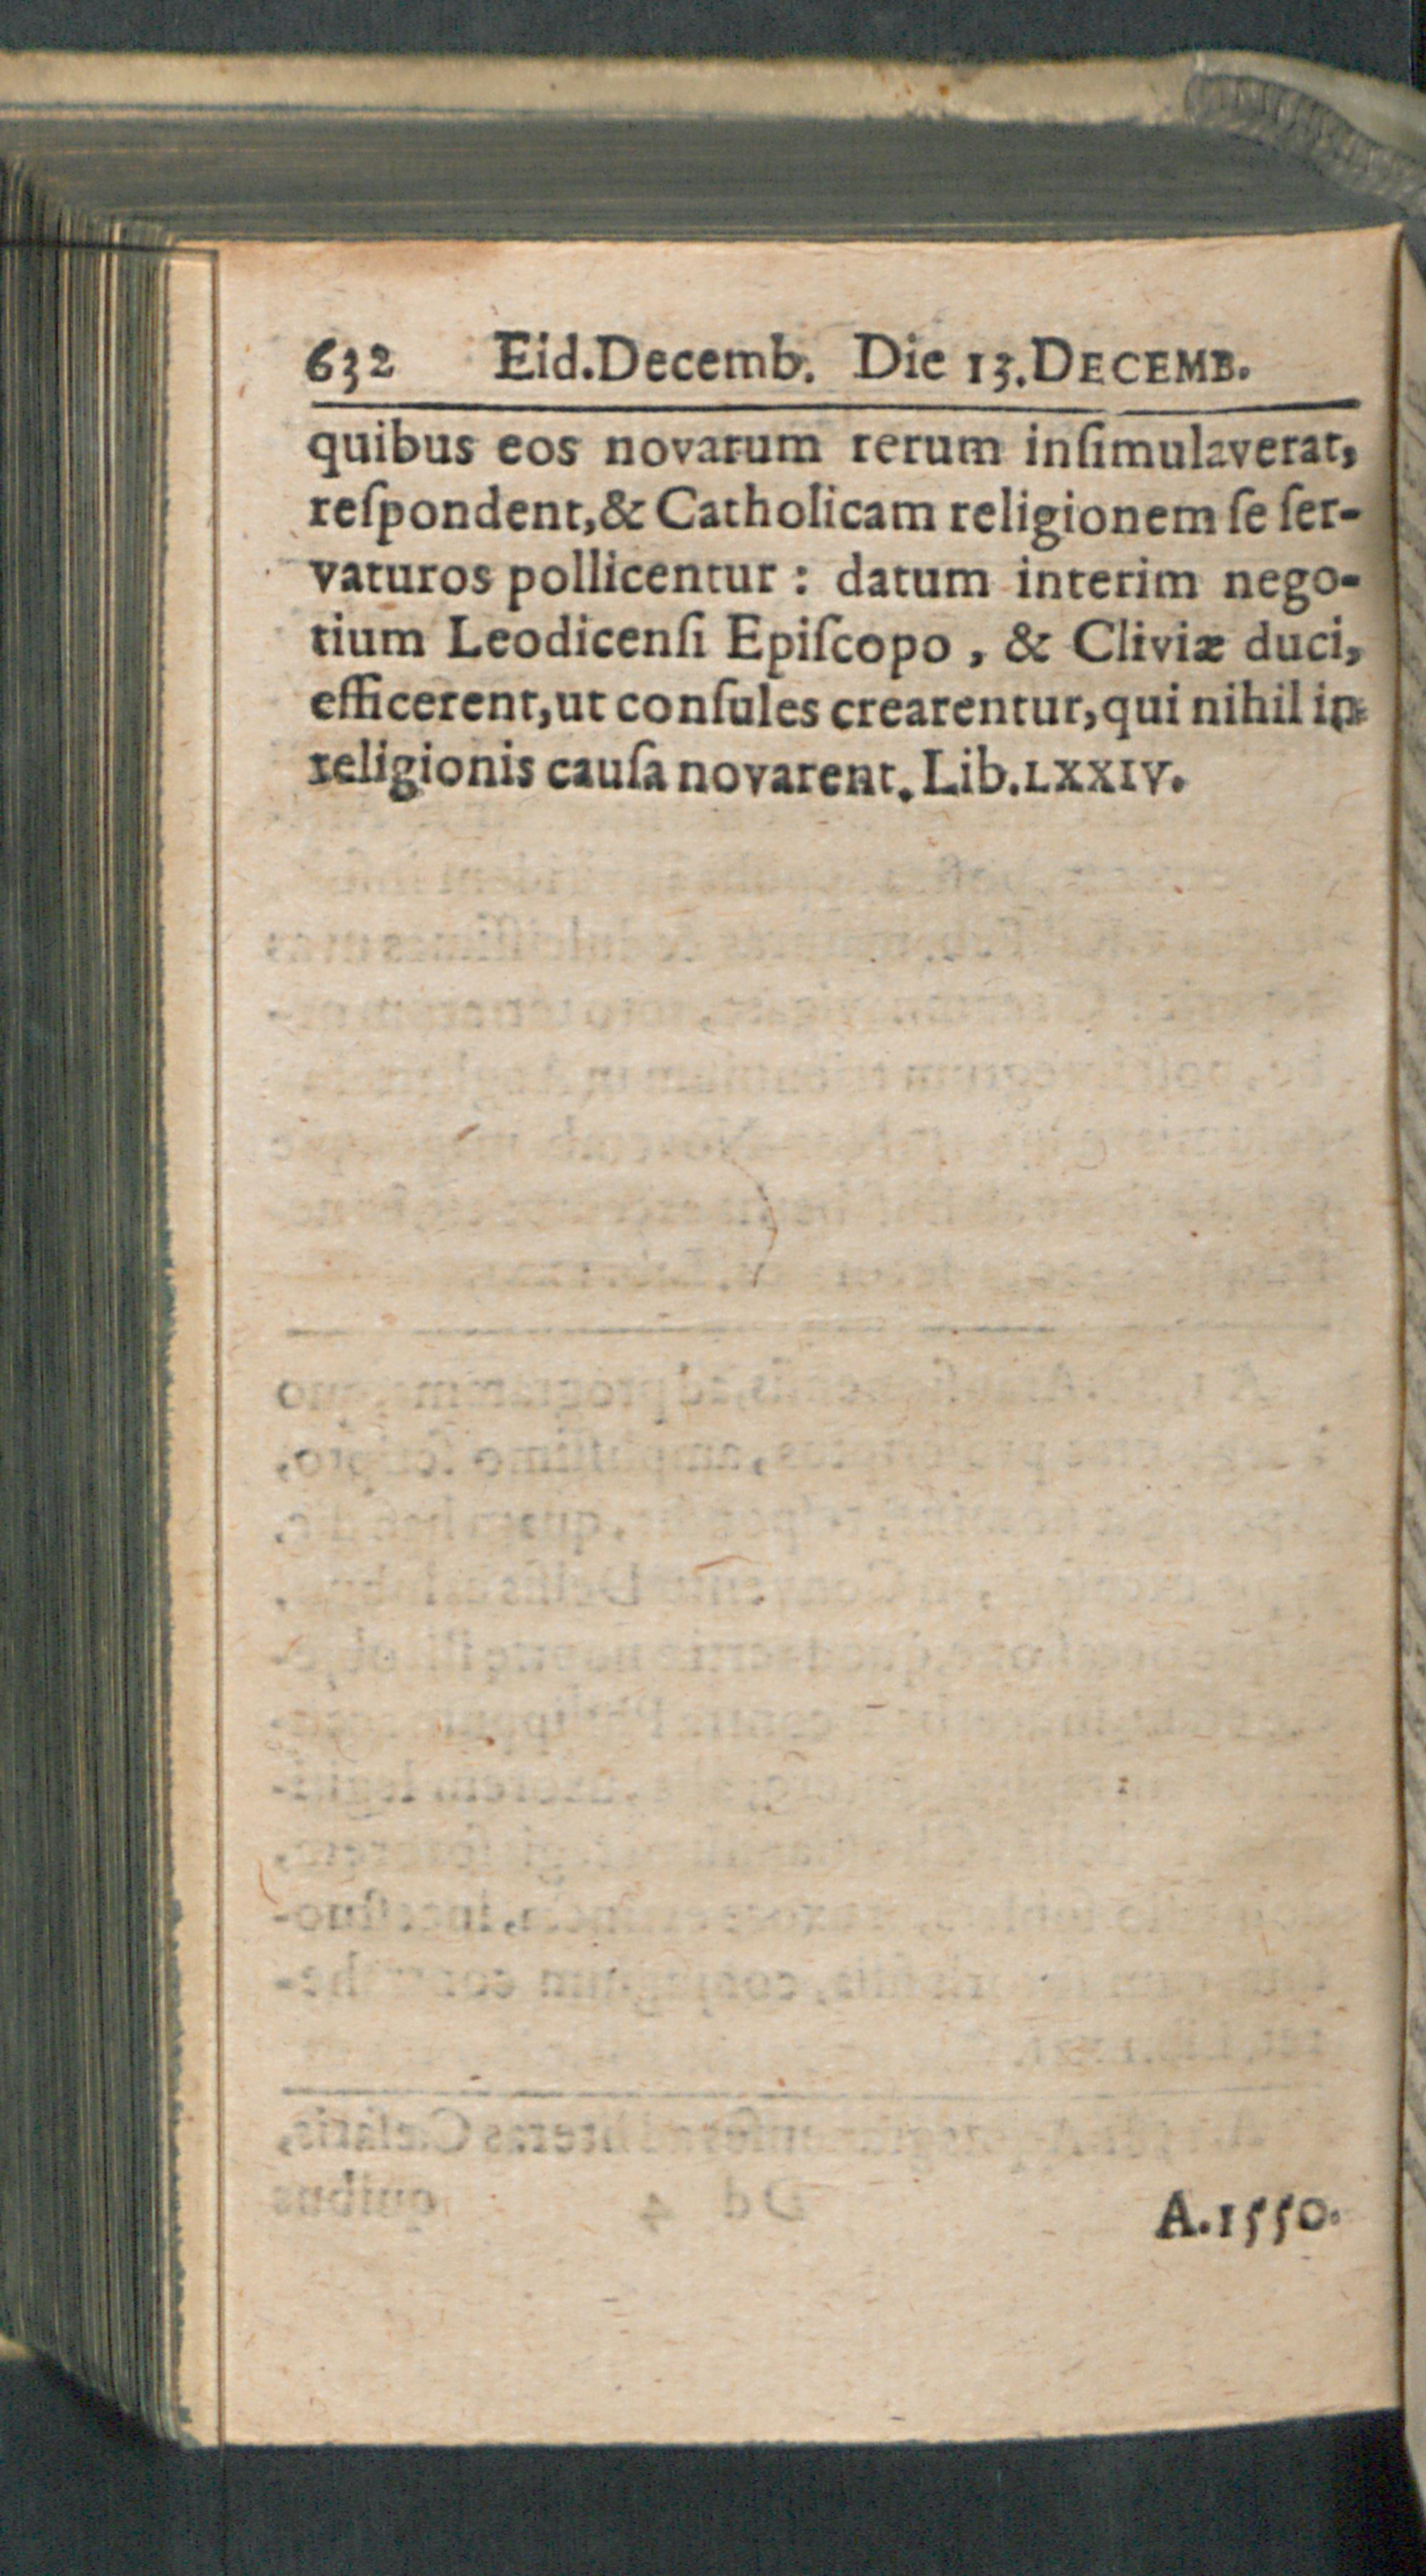 632 Eid.Decemb. Die 13.DECEMB.
quibus eos novarum rerum inſimulaverat,
reſpondent,& Catholicam religionem ſe ſer-
vaturos pollicentur : datum interim nego-
tium Leodicenſi Epiſcopo , & Cliviæ duci,
efficerent,ut conſules crearentur,qui nihil in
religionis cauſa novarent. Lib.LXXIV.
A.1550.